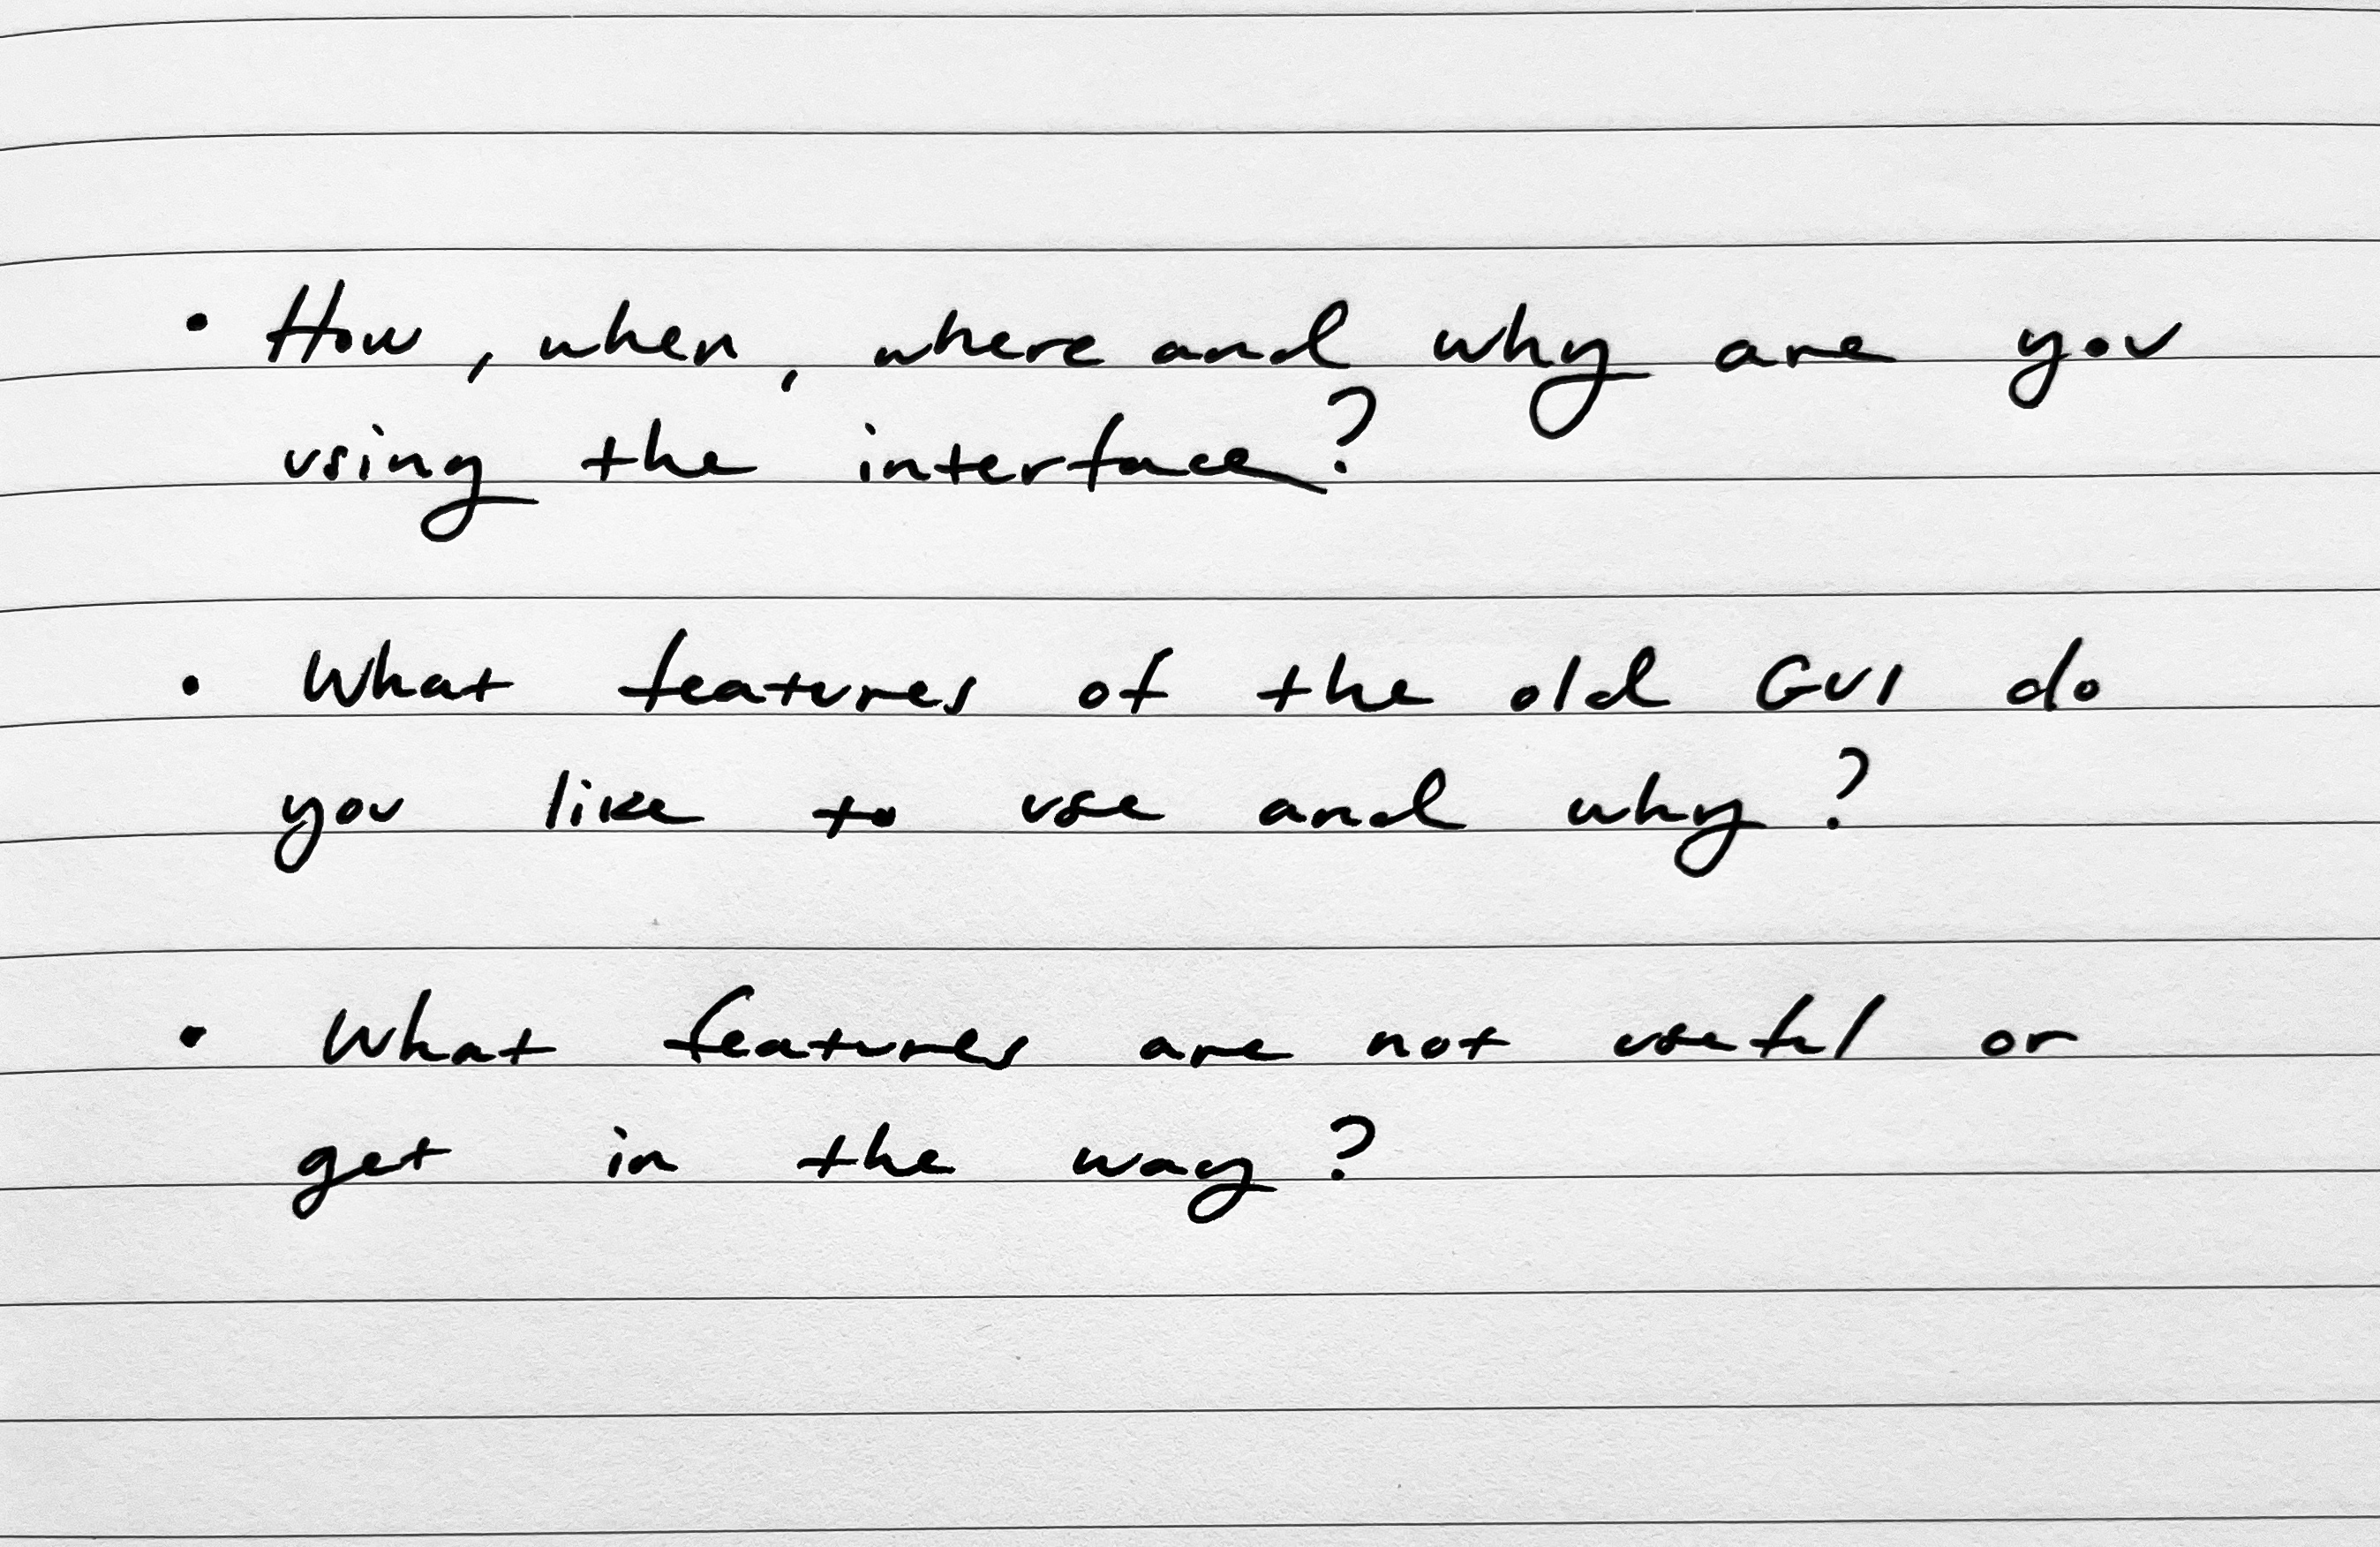 • How, when, where and why are you
using the interface?
• What features of the old GUI do
you like to use and why?
• What features are not useful or
get in the way?